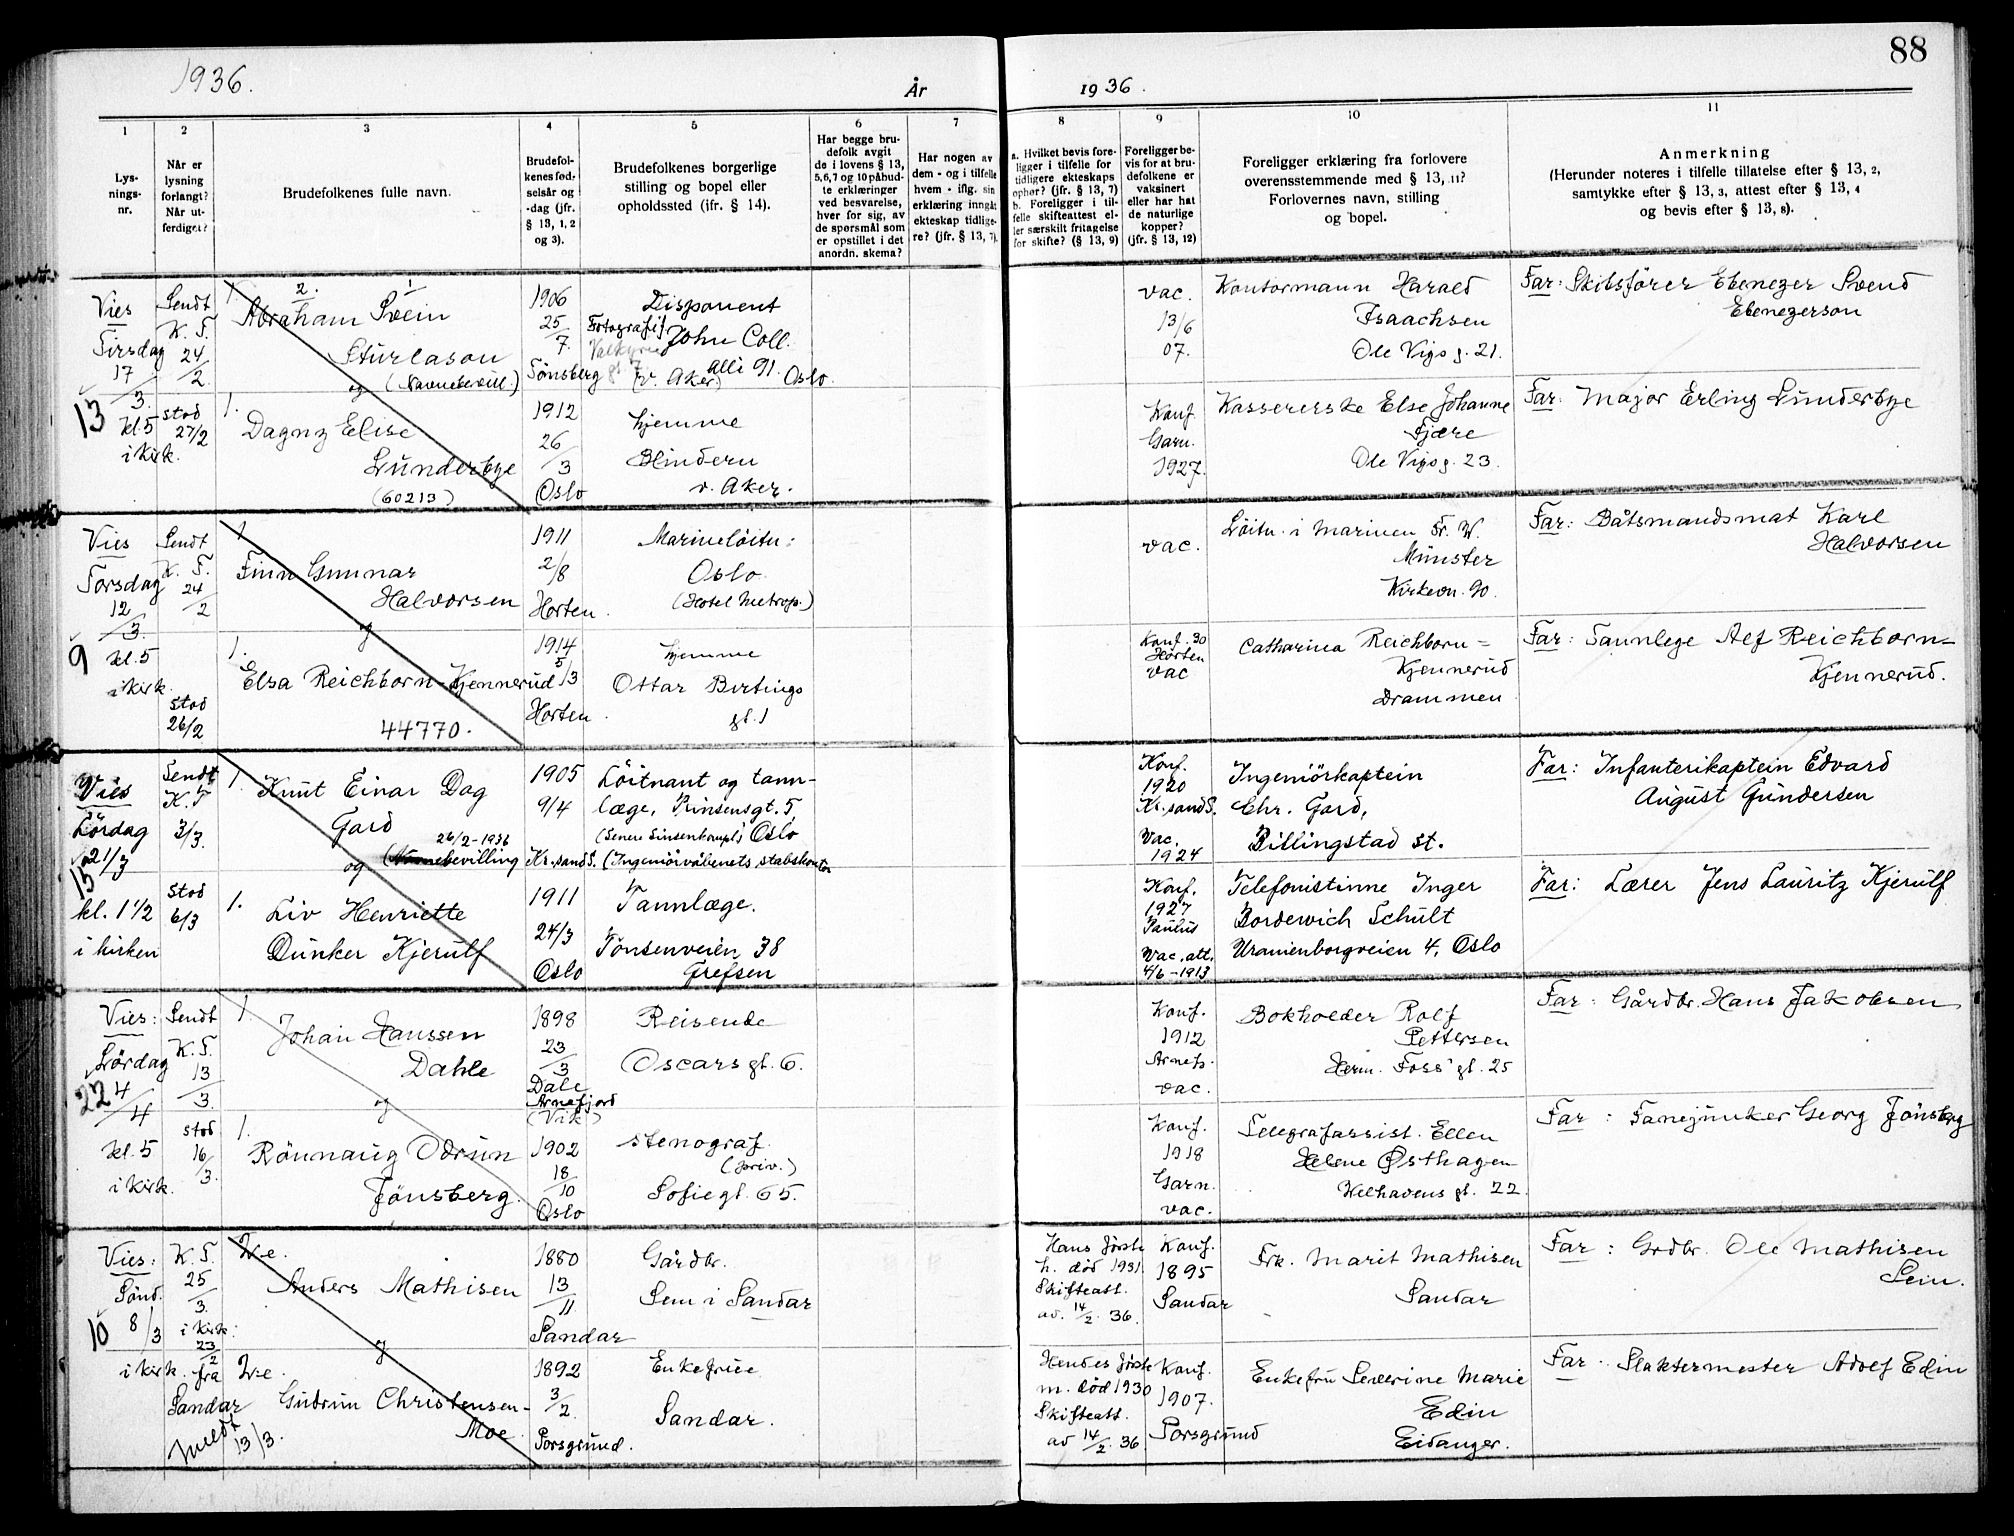 88
1936.
År
1936.
1
2
3
4
5
6
7
8
9
10
11
Lys-
nings-
nr.
Når er
lysning
forlangt?
Når ut-
ferdiget?
Brudefolkenes fulle navn.
Brudefol-
kenes fød-
selsår og
-dag (jfr.
§ 13, 1, 2
og 3).
Brudefolkenes borgerlige
stilling og bopel eller
opholdssted (jfr. § 14).
Har begge bru-
defolk avgit
de i lovens § 13,
5,6,7 og 10 påbud-
te erklæringer
ved besvarelse,
hver for sig, av
de spørsmål som
er opstillet i det
anordn. skema?
Har nogen av
dem - og i tilfelle
hvem - iflg. sin
erklæring inngåt
ekteskap tidlige-
re? (jfr. § 13, 7).
a. Hvilket bevis fore-
ligger i tilfelle for
tidligere ekteskaps
ophør? (jfr. § 13, 7)
b. Foreligger i til-
felle skifteattest el-
ler særskilt fritagelse
for skifte? (§ 13, 9)
Foreligger be-
vis for at bru-
defolkene er
vaksinert
eller har hat
de naturlige
kopper?
(jfr. § 13, 12)
Foreligger erklæring fra forlovere
overensstemmende med § 13, 11?
Forlovernes navn, stilling
og bopel.
Anmerkning
(Herunder noteres i tilfelle tillatelse efter § 13, 2,
samtykke efter § 13, 3, attest efter § 13, 4
og bevis efter § 13, 8).
Vies
Tirsdag
17
/3.
13
kl. 5
i kirk.
Sendt
K. T.
24
/2.
stod
27/2
1.
2. 1
Abraham Svein
Sturlason
og (Navnebevill.)
1906
25
/7.
Tønsberg
Disponent
Fotografisf.
Valkyrieg. 7
John Coll.
alle 91.
(v. Aker) Oslo.
vac.
13/6
07.
Kontormann Harald
Isaachsen
Ole Vigs g. 21.
Far: Skibsfører Ebenezer Svend
Ebenezerson
1.
Dagny Elise
Lunderbye
(60213)
1912
26
/3
Oslo
hjemme
Blindern
v. Aker.
Konf.
Garn.
1927.
Kassererske Else Johanne
Fjære
Ole Vigs g. 23.
Far: Major Erling Lunderbye
Vies
Torsdag
12
/3.
9
kl. 5
i kirk.
Sendt
K. T.
24
/2
stod
26/2
1
Finn Gunnar
Halvorsen
og
1911
2/8
Horten.
Marineløitn:
Oslo
(Hotel Metrop.)
vac.
Løitn. i marinen Fr. W.
Münster
Kirkevn. 90.
Far: Båtsmandsmat Karl
Halvorsen
1.
Elsa Reichborn-Kjennerud
44770.
1914
5/3
Horten.
hjemme
Ottar Birtings
gt. 1
Konf. 30
Horten
vac
Catharina Reichborn=
Kjennerud
Drammen
Far: Tannlege Alf Reichborn=
Kjennerud.
Vies
Lørdag
21/3
15
kl. 1 1/2
i kirken
Sendt
K. T
3/3.
stod
6/3
1.
Knut Einar Dag
Gard
26/2-1936
og (Navnebevilling
1905
9/4
Kr.sand S.
Løitnant og tann-
læge, Prinsensgt. 5,
(Senere Sinsenkompl.) Oslo
(Ingeniørvåbenets stabskontor
Konf.
1920
Kr.sand S.
Vac.
1924
Ingeniørkaptein
Chr. Gard,
Billingstad st.
Far: Infanterikaptein Edvard
August Gundersen
1.
Liv Henriette
Dunker Kjerulf
1911
24/3
Oslo
Tannlæge.
Tonsenveien 38
Grefsen
Konf.
1927
Paulus
Vac. att.
4/6-1913
Telefonistinne Inger
Bordewich Schult
Uranienborgveien 4, Oslo
Far: Lærer Jens Lauritz Kjerulf
Vies:
Lørdag
4
/4
22
kl. 5
i kirk.
Sendt
K. T.
13
/3.
stod
16
/3.
1.
Johan Hanssen
Dahle
og
1898
23
/3
Dale
Arnafjord
(Vik)
Reisende
Oscars gt. 6.
Konf.
1912
Arnefj.
vac.
Bokholder Rolf
Pettersen
Herm. Foss' gt. 25
Far: Gårdbr. Hans Jakobsen
1.
Rønnaug Odrun
Jønsberg.
1902
18
/10
Oslo
stenograf
(priv.)
Sofiegt. 65.
Konf.
1918
Garn.
vac.
Telegrafassist. Ellen
Helene Østhagen
Welhavens gt. 22.
Far: Fanejunker Georg Jønsberg
Vies:
Sønd.
8/3
10
i kirk.
K. T.
25
/3.
i kirk.
23
/2
fra
Sandar
meldt
13/3.
E.e.
Anders Mathisen
og
1880
13
/11.
Sandar
Gårdbr.
Sem i Sandar
Hans første
h. død 1931
Skifteatt.
av. 14/2. 36.
Konf.
1895
Sandar
Frk. Marit Mathisen
Sandar
Far: Grdbr. Ole Mathisen
Sem.
E.e.
Gudrun Christensen-
Moe.
1892
3
/2.
Porsgrund.
Enkefrue
Sandar.
Hendes første
m. død 1930
Skifteatt.
av 14/2. 36
Konf.
1907.
Porsgrund
Enkefru Severine Marie
Edin
Eidanger.
Far: Slaktermester Adolf Edin